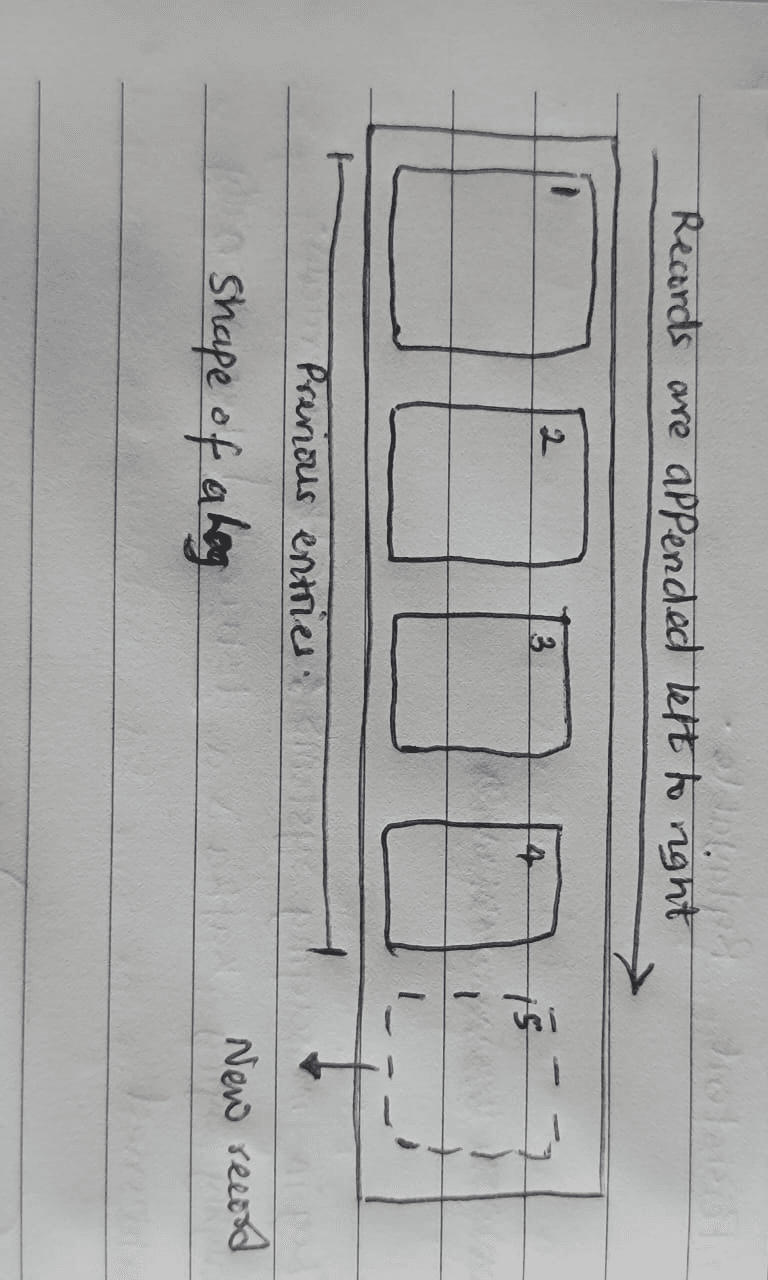 Records are appended left to right
1
2
3
4
5
Previous entries.
New record
Shape of a log